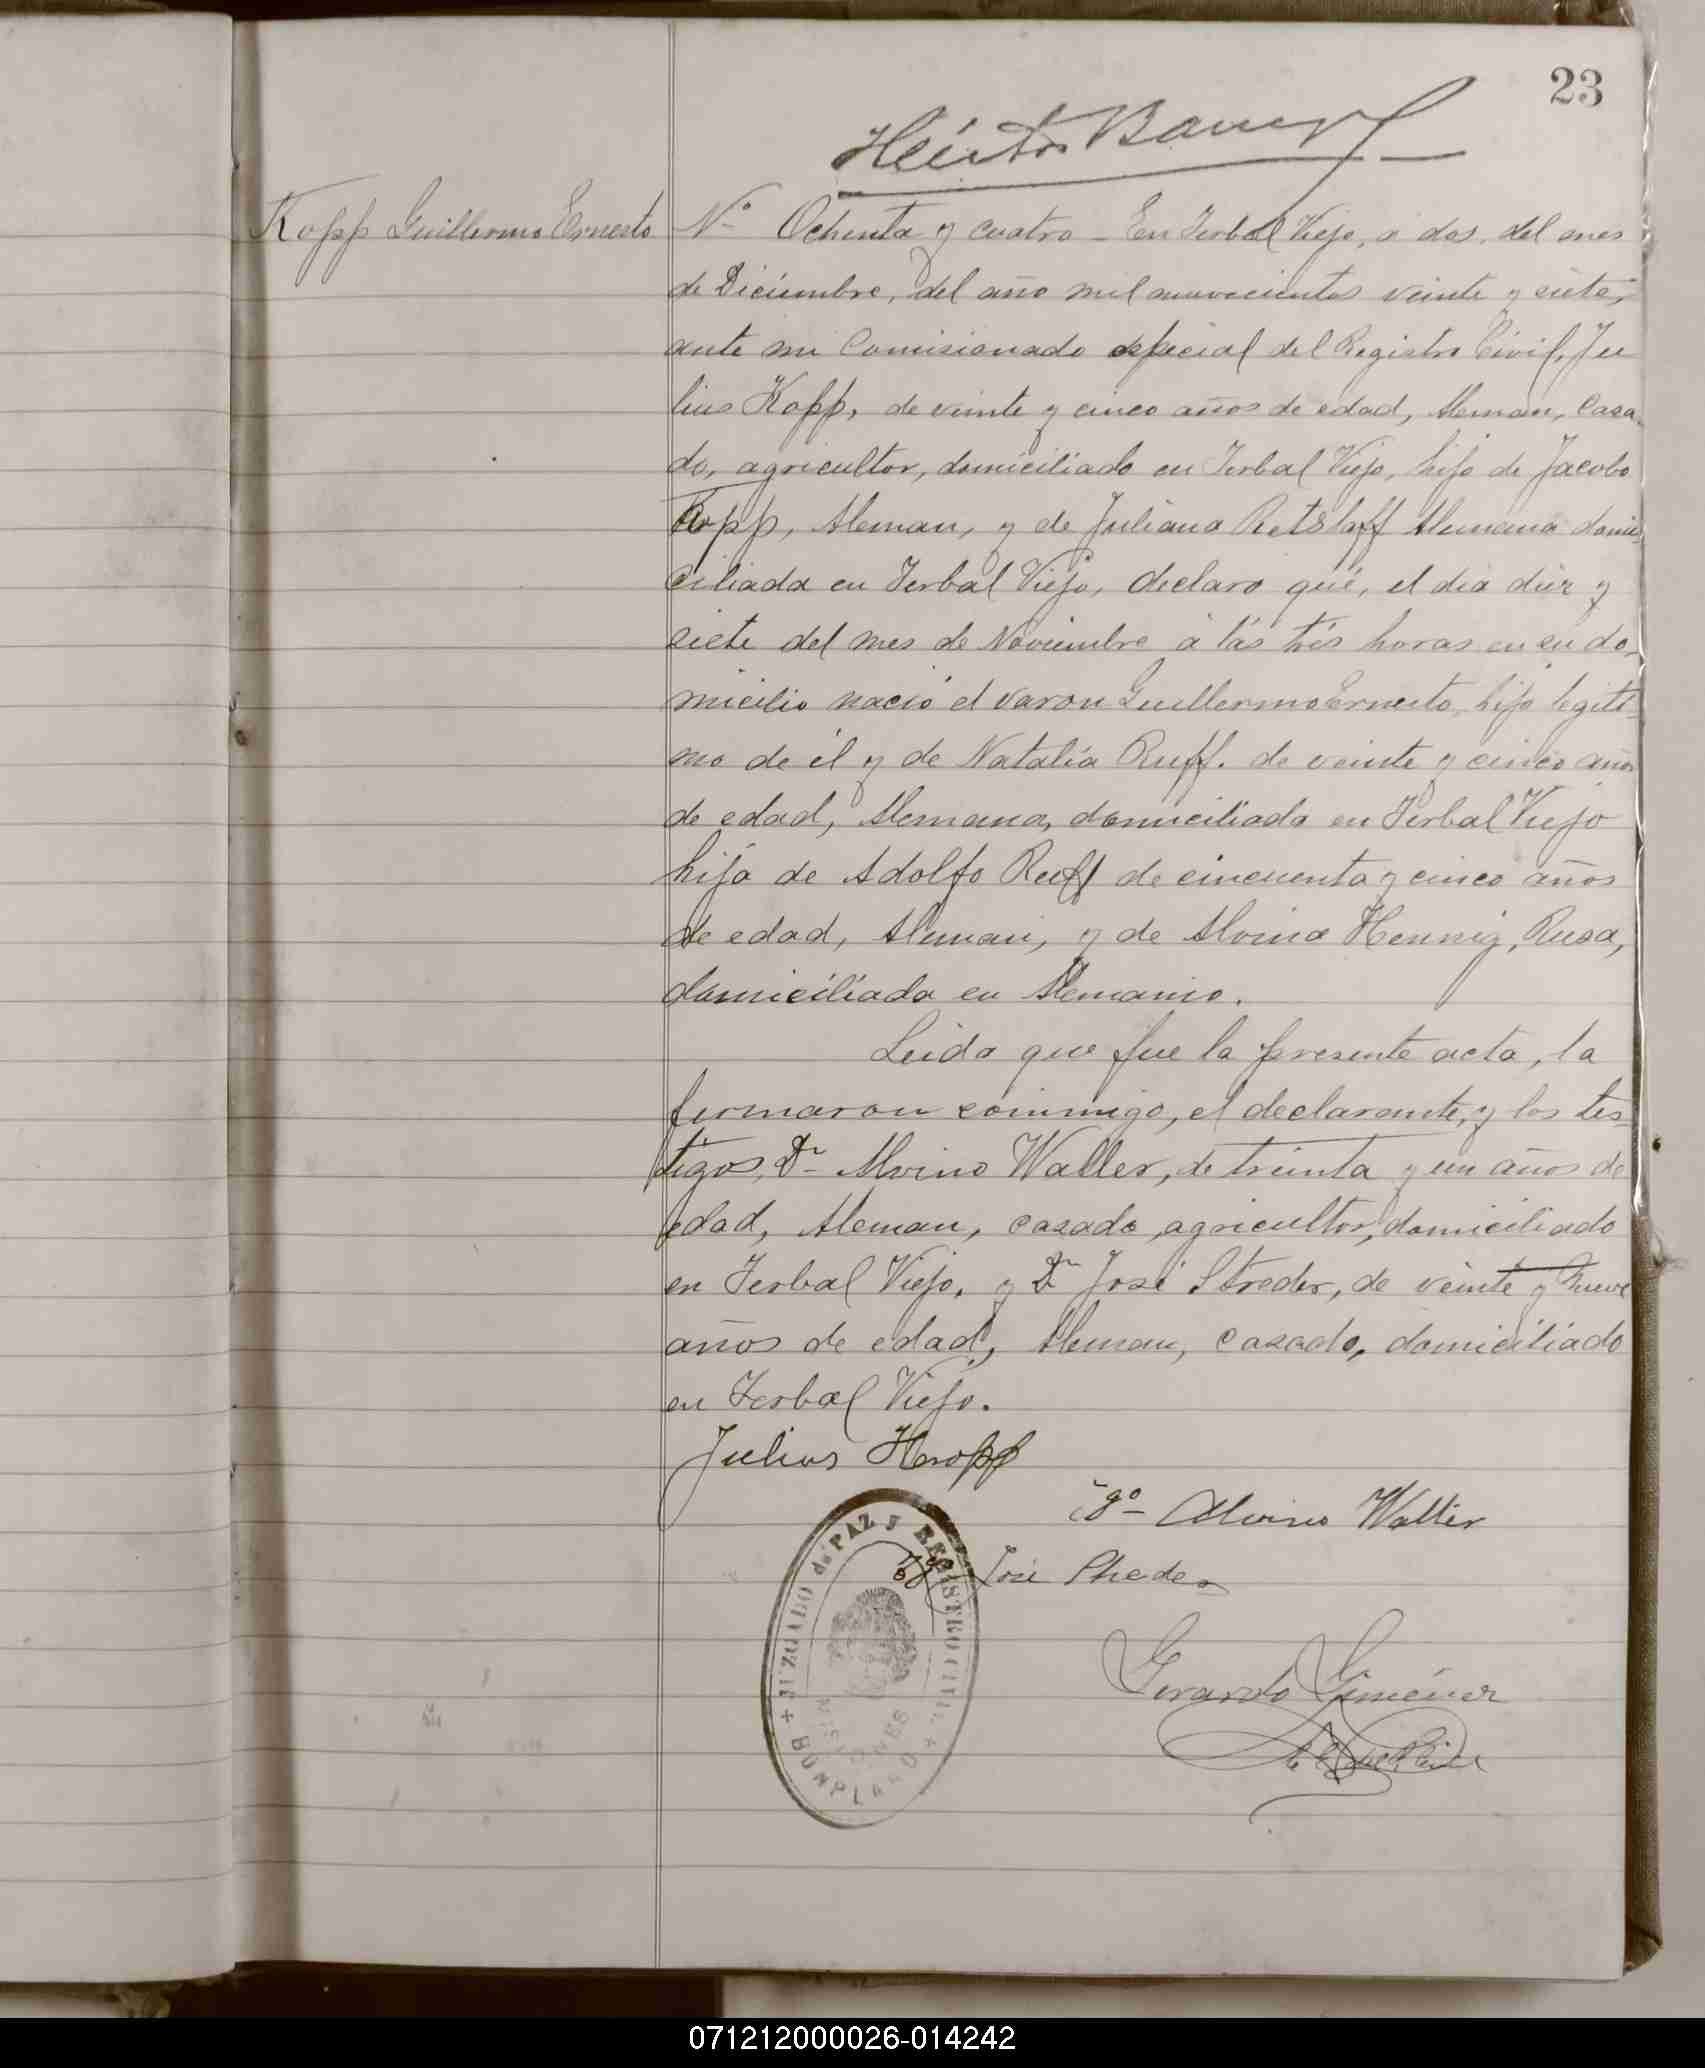 23
Héctor Barreyro
Kopp Guillermo Ernesto
Nº Ochenta y cuatro - En Yerbal Viejo, a dos, del mes
de Diciembre, del año mil novecientos veinte y siete,
ante mi Comisionado especial del Registro Civil, Ju
lius Kopp, de veinte y cinco años de edad, Aleman, Casa
do, agricultor, domiciliado en Yerbal Viejo, hijo de Jacobo
Kopp, Aleman, y de Juliana Retslaff Alemana domi
ciliada en Yerbal Viejo, declaro que, el dia diez y
siete del mes de Noviembre á las tres horas en su do
micilio nació el varon Guillermo Ernesto, hijo legiti
mo de él y de Natalia Ruff. de veinte y cinco años
de edad, Alemana, domiciliada en Yerbal Viejo
hija de Adolfo Ruff de cincuenta y cinco años
de edad, Aleman, y de Alvina Hennig, Rusa,
domiciliada en Alemania.
Leida que fue la presente acta, la
firmaron conmigo, el declarante, y los tes
tigos, Dn Alvino Walter, de treinta y un años de
edad, Aleman, casado, agricultor, domiciliado
en Yerbal Viejo, y Dn José Streder, de veinte y nueve
años de edad, Aleman, casado, domiciliado
en Yerbal Viejo.
Julius Kropp
tgo Alvino Walter
tgo José Shreder
Gerardo Giménez
JUZGADO de PAZ y REGISTRO CIVIL
MISIONES
BONPLAND
071212000026-014242